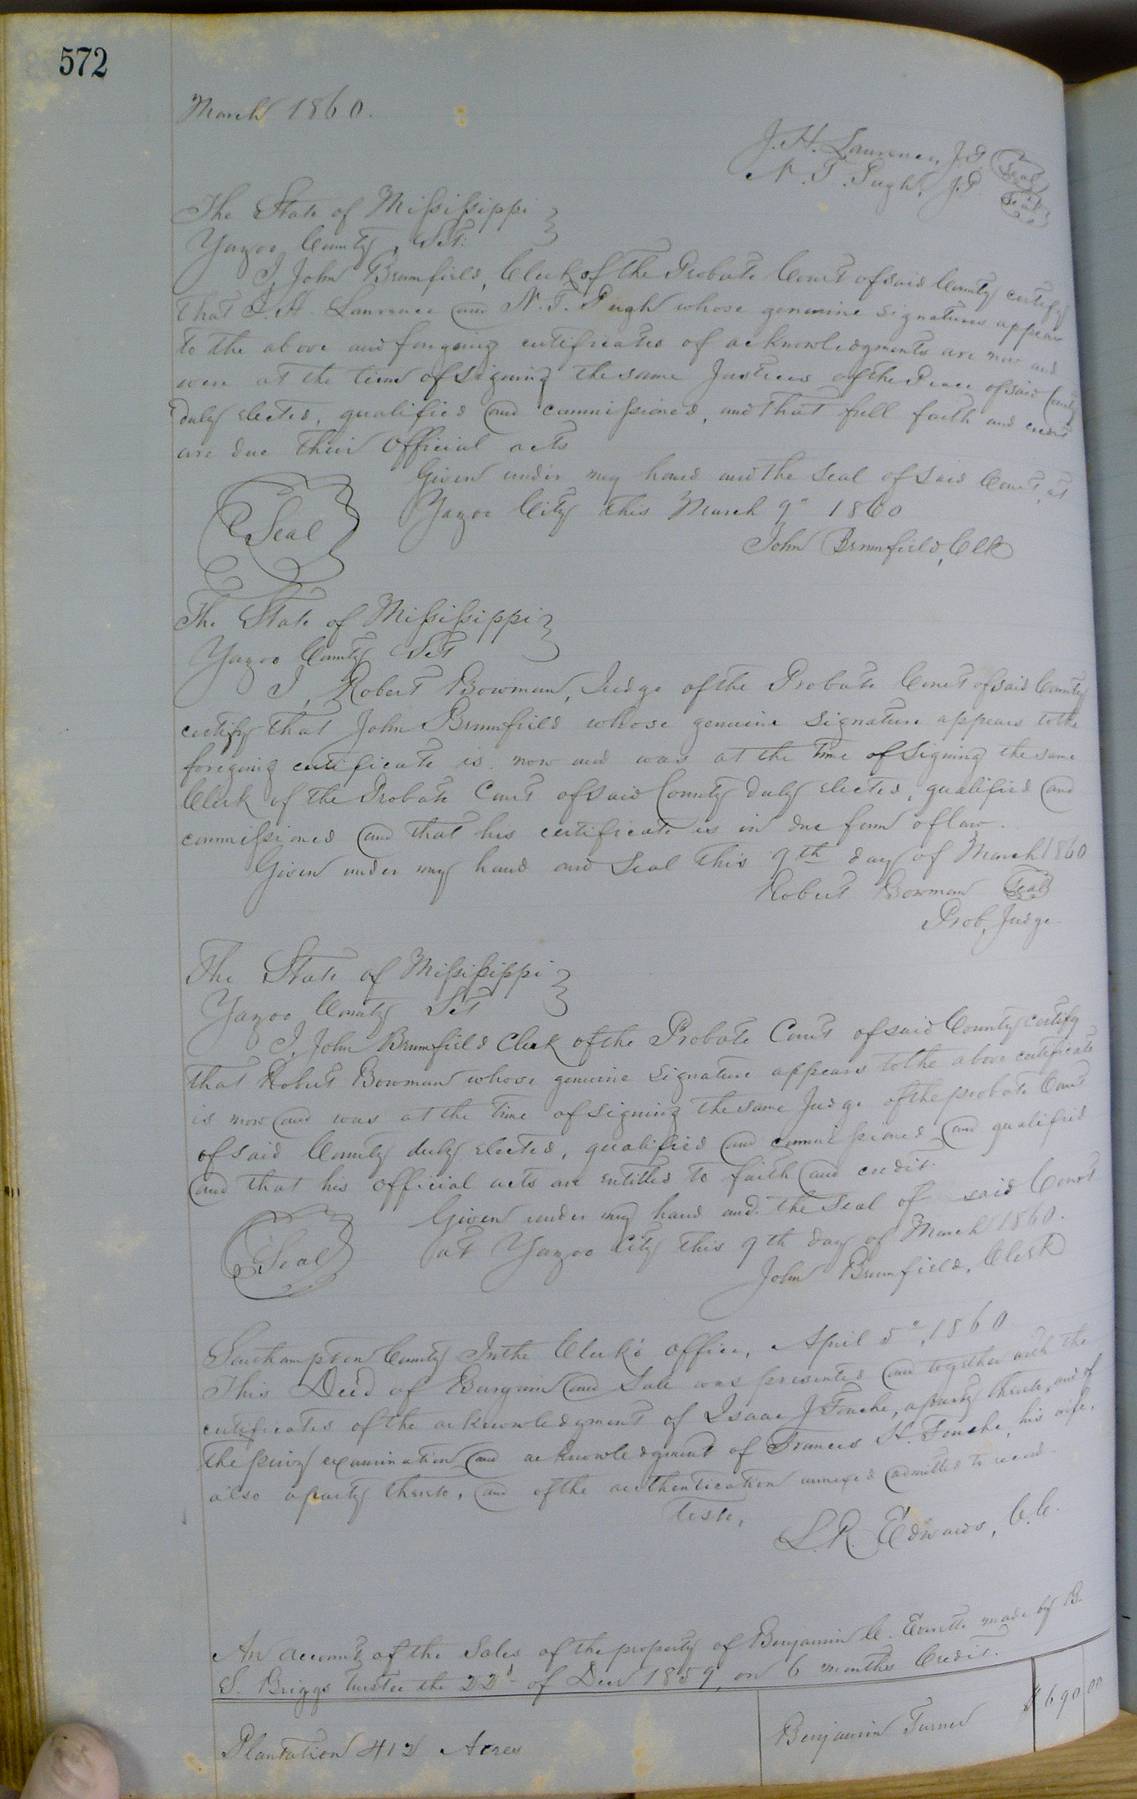 572
March 1860.
J. H. Lawrence, J.P. Seal
N. T. Pugh, J.P. Seal
The State of Mississippi }
Yazoo County, Sct:
I, John Brumfield, Clerk of the Probate Court of said County certify
that J. H. Lawrence and N. T. Pugh whose genuine signatures appear
to the above and foregoing certificates of acknowledgments are now and
were at the time of signing the same Justices of the Peace of said County
duly elected, qualified and commissioned, and that full faith and credit
are due their official acts
Given under my hand and the seal of said Court, at
Seal Yazoo City this March 9" 1860
John Brumfield, Clk
The State of Mississippi }
Yazoo County Sct
I, Robert Bowman, Judge of the Probate Court of said County
certify that John Brumfield whose genuine signature appears to the
foregoing certificate is now and was at the time of signing the same
Clerk of the Probate Court of said County duly elected, qualified and
commissioned and that his certificate is in due form of law.
Given under my hand and seal this 9th day of March 1860
Robert Bowman Seal
Prob. Judge
The State of Mississippi }
Yazoo County Sct
I, John Brumfield Clerk of the Probate Court of said County certify
that Robert Bowman whose genuine signature appears to the above certificate
is now and was at the time of signing the same Judge of the probate Court
of said County duly elected, qualified and commissioned and qualified
and that his official acts are entitled to faith and credit.
Given under my hand and the seal of said Court
Seal at Yazoo City this 9th day of March 1860.
John Brumfield, Clerk
Southampton County In the Clerk's office, April 5", 1860
This Deed of Bargain and Sale was presented and together with the
certificates of the acknowledgment of Isaac J Fouche, a party thereto, and of
the privy examination and acknowledgment of Frances H. Fouche, his wife,
also a party thereto, and of the authentication annexed admitted to record
Teste,
L. R. Edwards, C.C.
An account of the Sales of the property of Benjamin C. Everette made by B.
S. Briggs trustee the 22d of Decr 1859, on 6 months Credit.
Plantation 412 Acres Benjamin Turner $690 00